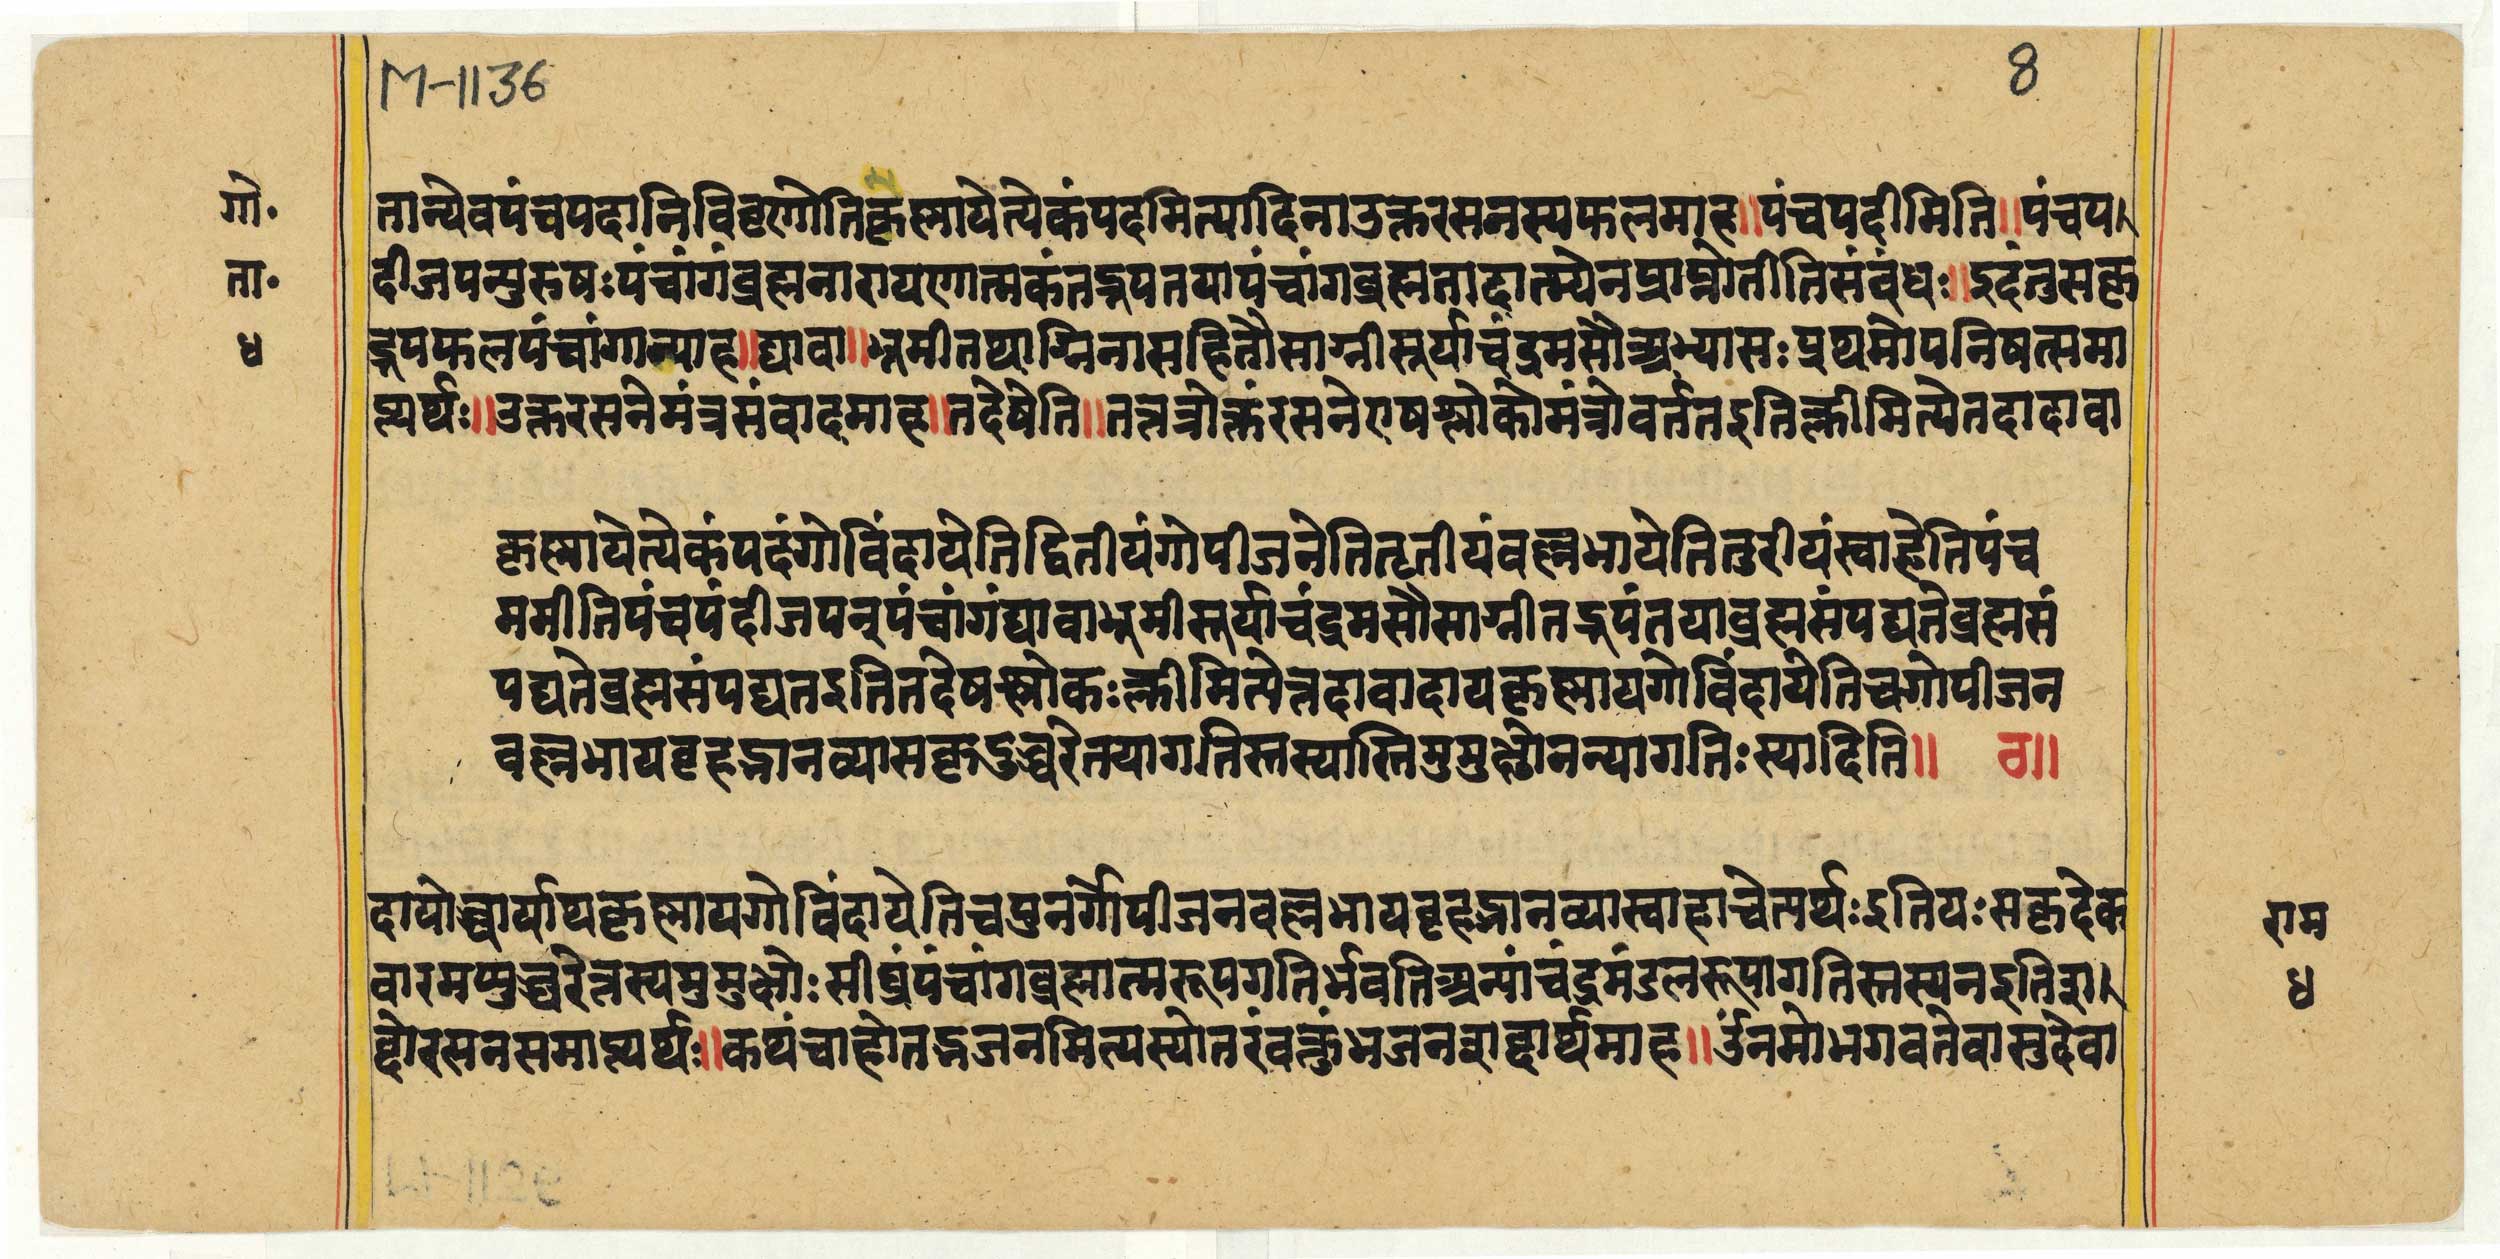 M-1136
8
गो॰
ता॰
४
तान्येवपंचपदानिविवृणोतिकृष्णायेत्येकंपदमित्यादिनाउक्तरसनस्यफलमाह॥पंचपदीमिति॥पंचप
दीजपन्पुरुषःपंचांगंब्रह्मनारायणात्मकंतद्रूपतयापंचांगब्रह्मतादात्म्येनप्राप्नोतीतिसंबंधः॥इदंतुसकृ
द्रूपफलपंचांगान्याह॥द्यावा॥भूमीतथाग्निनासहितौसाग्नीसूर्याचंद्रमसौअभ्यासःप्रथमोपनिषत्समा
प्त्यर्थः॥उक्तरसनेमंत्रसंवादमाह॥तदेषेति॥तत्रोक्तंरसनेएषश्लोकोमंत्रोवर्ततइतिक्लीमित्येतदादावा
कृष्णायेत्येकंपदंगोविंदायेतिद्वितीयंगोपीजनेतितृतीयंवल्लभायेतितुरीयंस्वाहेतिपंच
ममीतिपंचपंदीजपन्पंचांगंद्यावाभूमीसूर्याचंद्रमसौसाग्नीतद्रूपंतयाब्रह्मसंपद्यतेब्रह्मसं
पद्यतेब्रह्मसंपद्यतइतितदेषश्लोकःक्लीमित्येतदावादायकृष्णायगोविंदायेतिचगोपीजन
वल्लभायबृहद्भानव्यासकृदुच्चरेतयागतिस्तस्यास्तिमुमुक्षोनन्यागतिःस्यादिति॥ व॥
दायोच्चार्याथकृष्णायगोविंदायेतिचपुनर्गोपीजनवल्लभायबृहद्भानव्यास्वाहाचेत्यर्थःइतियःसकृदेक
वारमप्युच्चरेत्तस्यमुमुक्षोःसीघ्रंपंचांगब्रह्मात्मरूपगतिर्भवतिअन्यांचंद्रमंडलरूपागतिस्तस्यनइतिश
ब्दोरसनसमाप्त्यर्थः॥कथंचाहोतद्भजनमित्यस्योतरंवक्तुंभजनशब्दार्थमाह॥उंनमोभगवतेवासुदेवा
राम
४